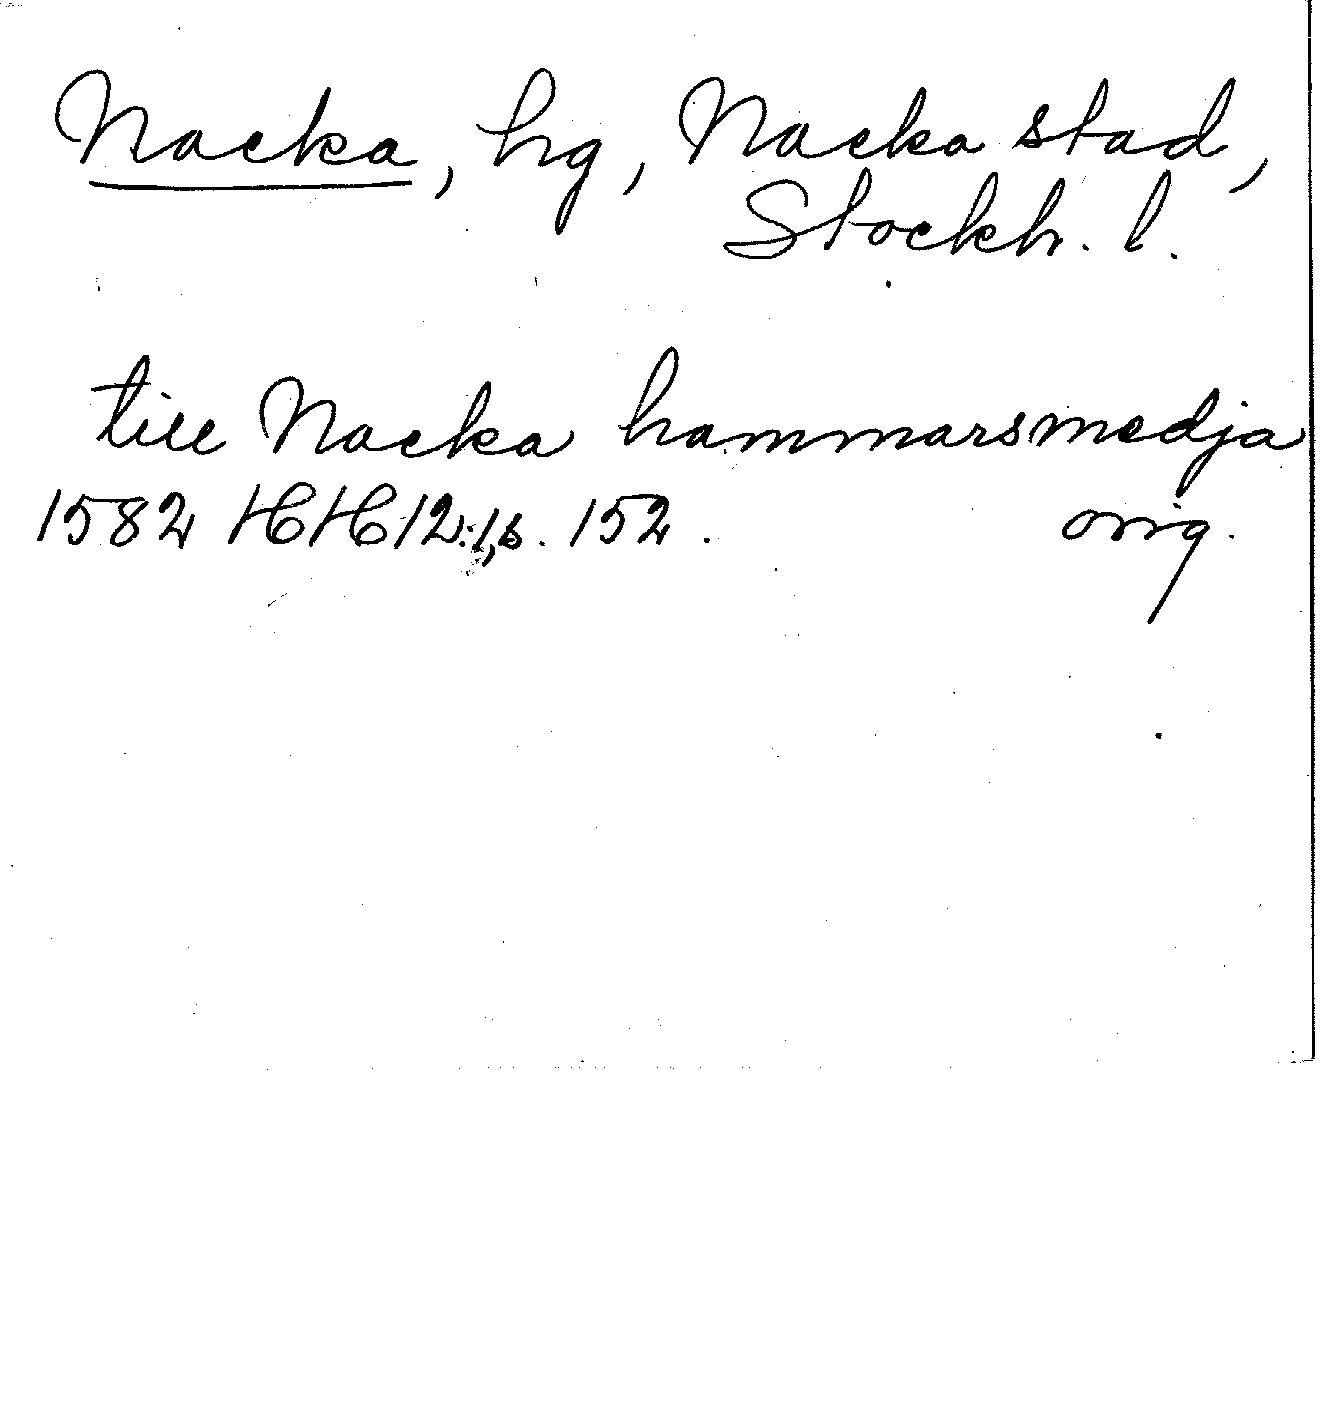 Nacka, hg, Nacka stad,
Stockh. l.
till Nacka hammarsmedja
1582 HH 12:1, s. 152. orig.